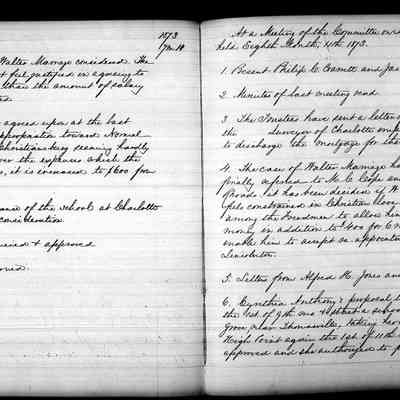 1873
7 m. 14
Walter Marriage considered. The
feel justified in agreeing to
than the amount of salary
agreed upon at the last
appropriation toward Normal
Christiansburg seeming hardly
over the expenses which the
it is increased to $600 from
of the school at Charlotte
consideration
& approved
At a Meeting of the Committee on
held Eighth Month, 11th 1873.
1. Present Philip C. Garrett and
2. Minutes of last meeting read
3. The Trustees have sent a letter
the Surveyor of Charlotte
to discharge the mortgage for the
4. The case of Walter Marriage
finally referred to M. C. Cope
Rhoads. It has been decided if W
feels constrained in Christian love
among the Freedmen to allow him
money in addition to $400 for
enable him to accept an
Lincolnton.
5. Letters from Alfred H. Jones and
6. Cynthia Anthony's proposal
the 1st of 9th mo &
Grove near Thomasville, taking
High Point again the 1st of 11th
approved and she authorized to